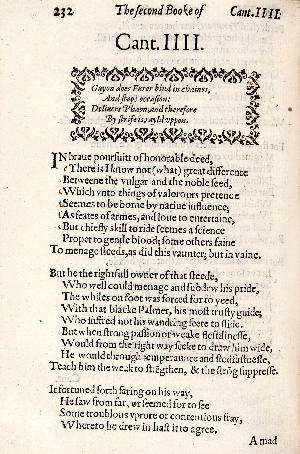 232 The second Booke of Cant. IIII.
Cant. IIII.
Guyon does Furor bind in chaines,
And stops occasion:
Deliuers Phaon, and therefore
By strife is rayld vppon.
IN braue poursuitt of honorable deed,
There is I know not (what) great difference
Betweene the vulgar and the noble seed,
Which vnto things of valorous pretence
Seemes to be borne by natiue influence;
As feates of armes, and loue to entertaine,
But chiefly skill to ride seemes a science
Proper to gentle blood; some others faine
To menage steeds, as did this vaunter; but in vaine.
But he the rightfull owner of that steede,
Who well could menage and subdew his pride,
The whiles on foot was forced for to yeed,
With that blacke Palmer, his most trusty guide;
Who suffred not his wandring feete to slide.
But when strong passion or weake fleshlinesse,
Would from the right way seeke to draw him wide,
He would through temperaunce and stedfastnesse,
Teach him the weak to strēgthen, & the strōg suppresse.
It fortuned forth faring on his way,
He saw from far, or seemed for to see
Some troublous vprore or contentious fray,
Whereto he drew in hast it to agree,
A mad